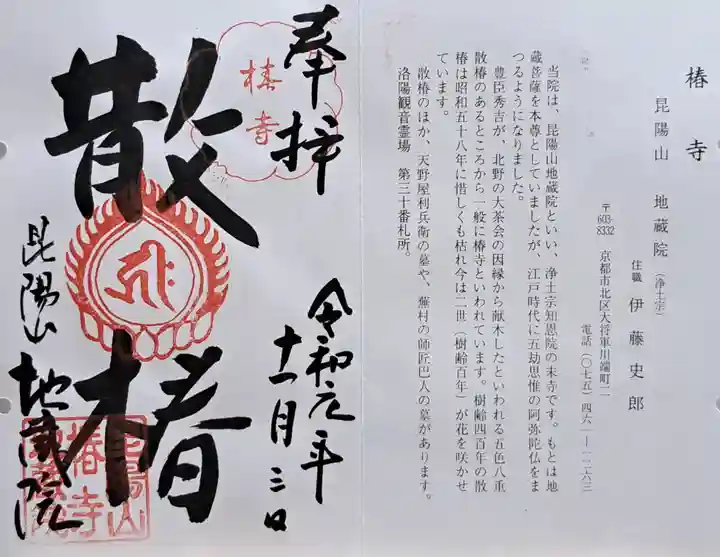 椿寺
昆陽山 地蔵院（浄土宗）
住職 伊藤史郎
〒603-8332 京都市北区大将軍川端町二
電話（〇七五）四六一―一二六三
当院は、昆陽山地蔵院といい、浄土宗知恩院の末寺です。もとは地
蔵菩薩を本尊としていましたが、江戸時代に五劫思惟の阿弥陀仏をま
つるようになりました。
豊臣秀吉が、北野の大茶会の因縁から献木したといわれる五色八重
散椿のあるところから一般に椿寺といわれています。樹齢四百年の散
椿は昭和五十八年に惜しくも枯れ今は二世（樹齢百年）が花を咲かせ
ています。
散椿のほか、天野屋利兵衛の墓や、蕪村の師匠巴人の墓があります。
洛陽観音霊場 第三十番札所。
奉拝
椿寺
令和元年
十一月三日
散椿
昆陽山 地蔵院
昆陽山
椿寺
地蔵院